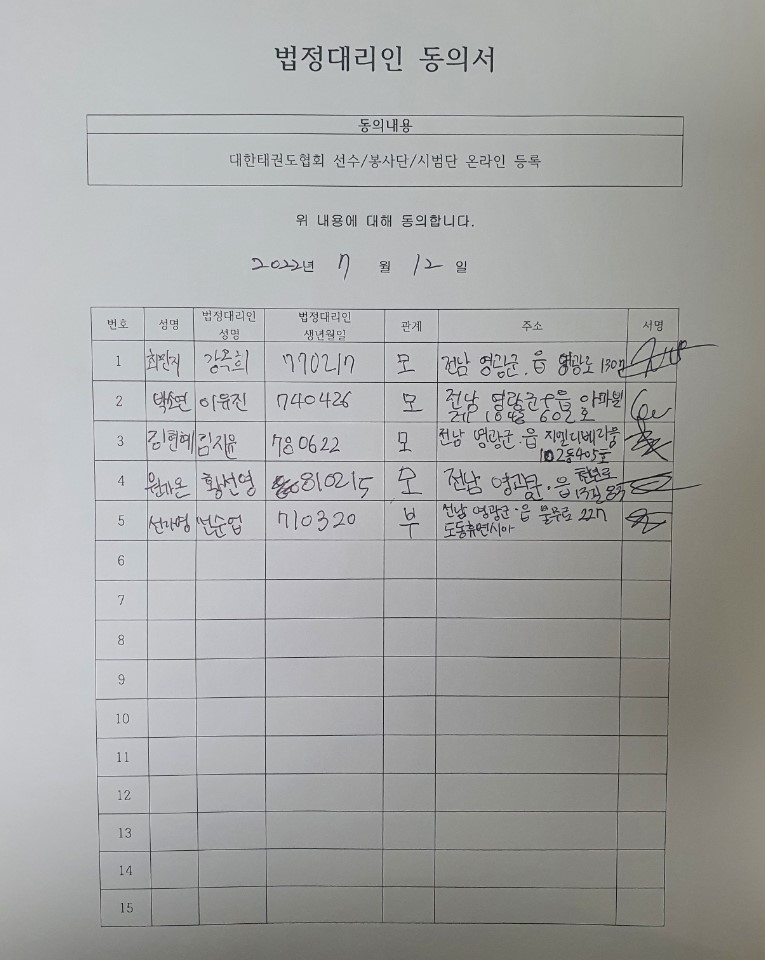 법정대리인 동의서
동의내용
대한태권도협회 선수/봉사단/시범단 온라인 등록
위 내용에 대해 동의합니다.
2022년 7 월 12 일
번호 성명 법정대리인 성명 법정대리인 생년월일 관계 주소 서명
1 최민지 강옥희 770217 모 전남 영광군.읍 영광로 130
2 박소연 이유진 740426 모 전남 영광군 읍 아마빌 602호
3 김현혜 김지윤 780622 모 전남 영광군.읍 지엘디베라움 102동405호
4 황선영 810215 모 전남 영광군.읍 천년로 13길 83
5 선가영 선순업 710320 부 전남 영광군.읍 물무로 227 도동휴먼시아
6
7
8
9
10
11
12
13
14
15